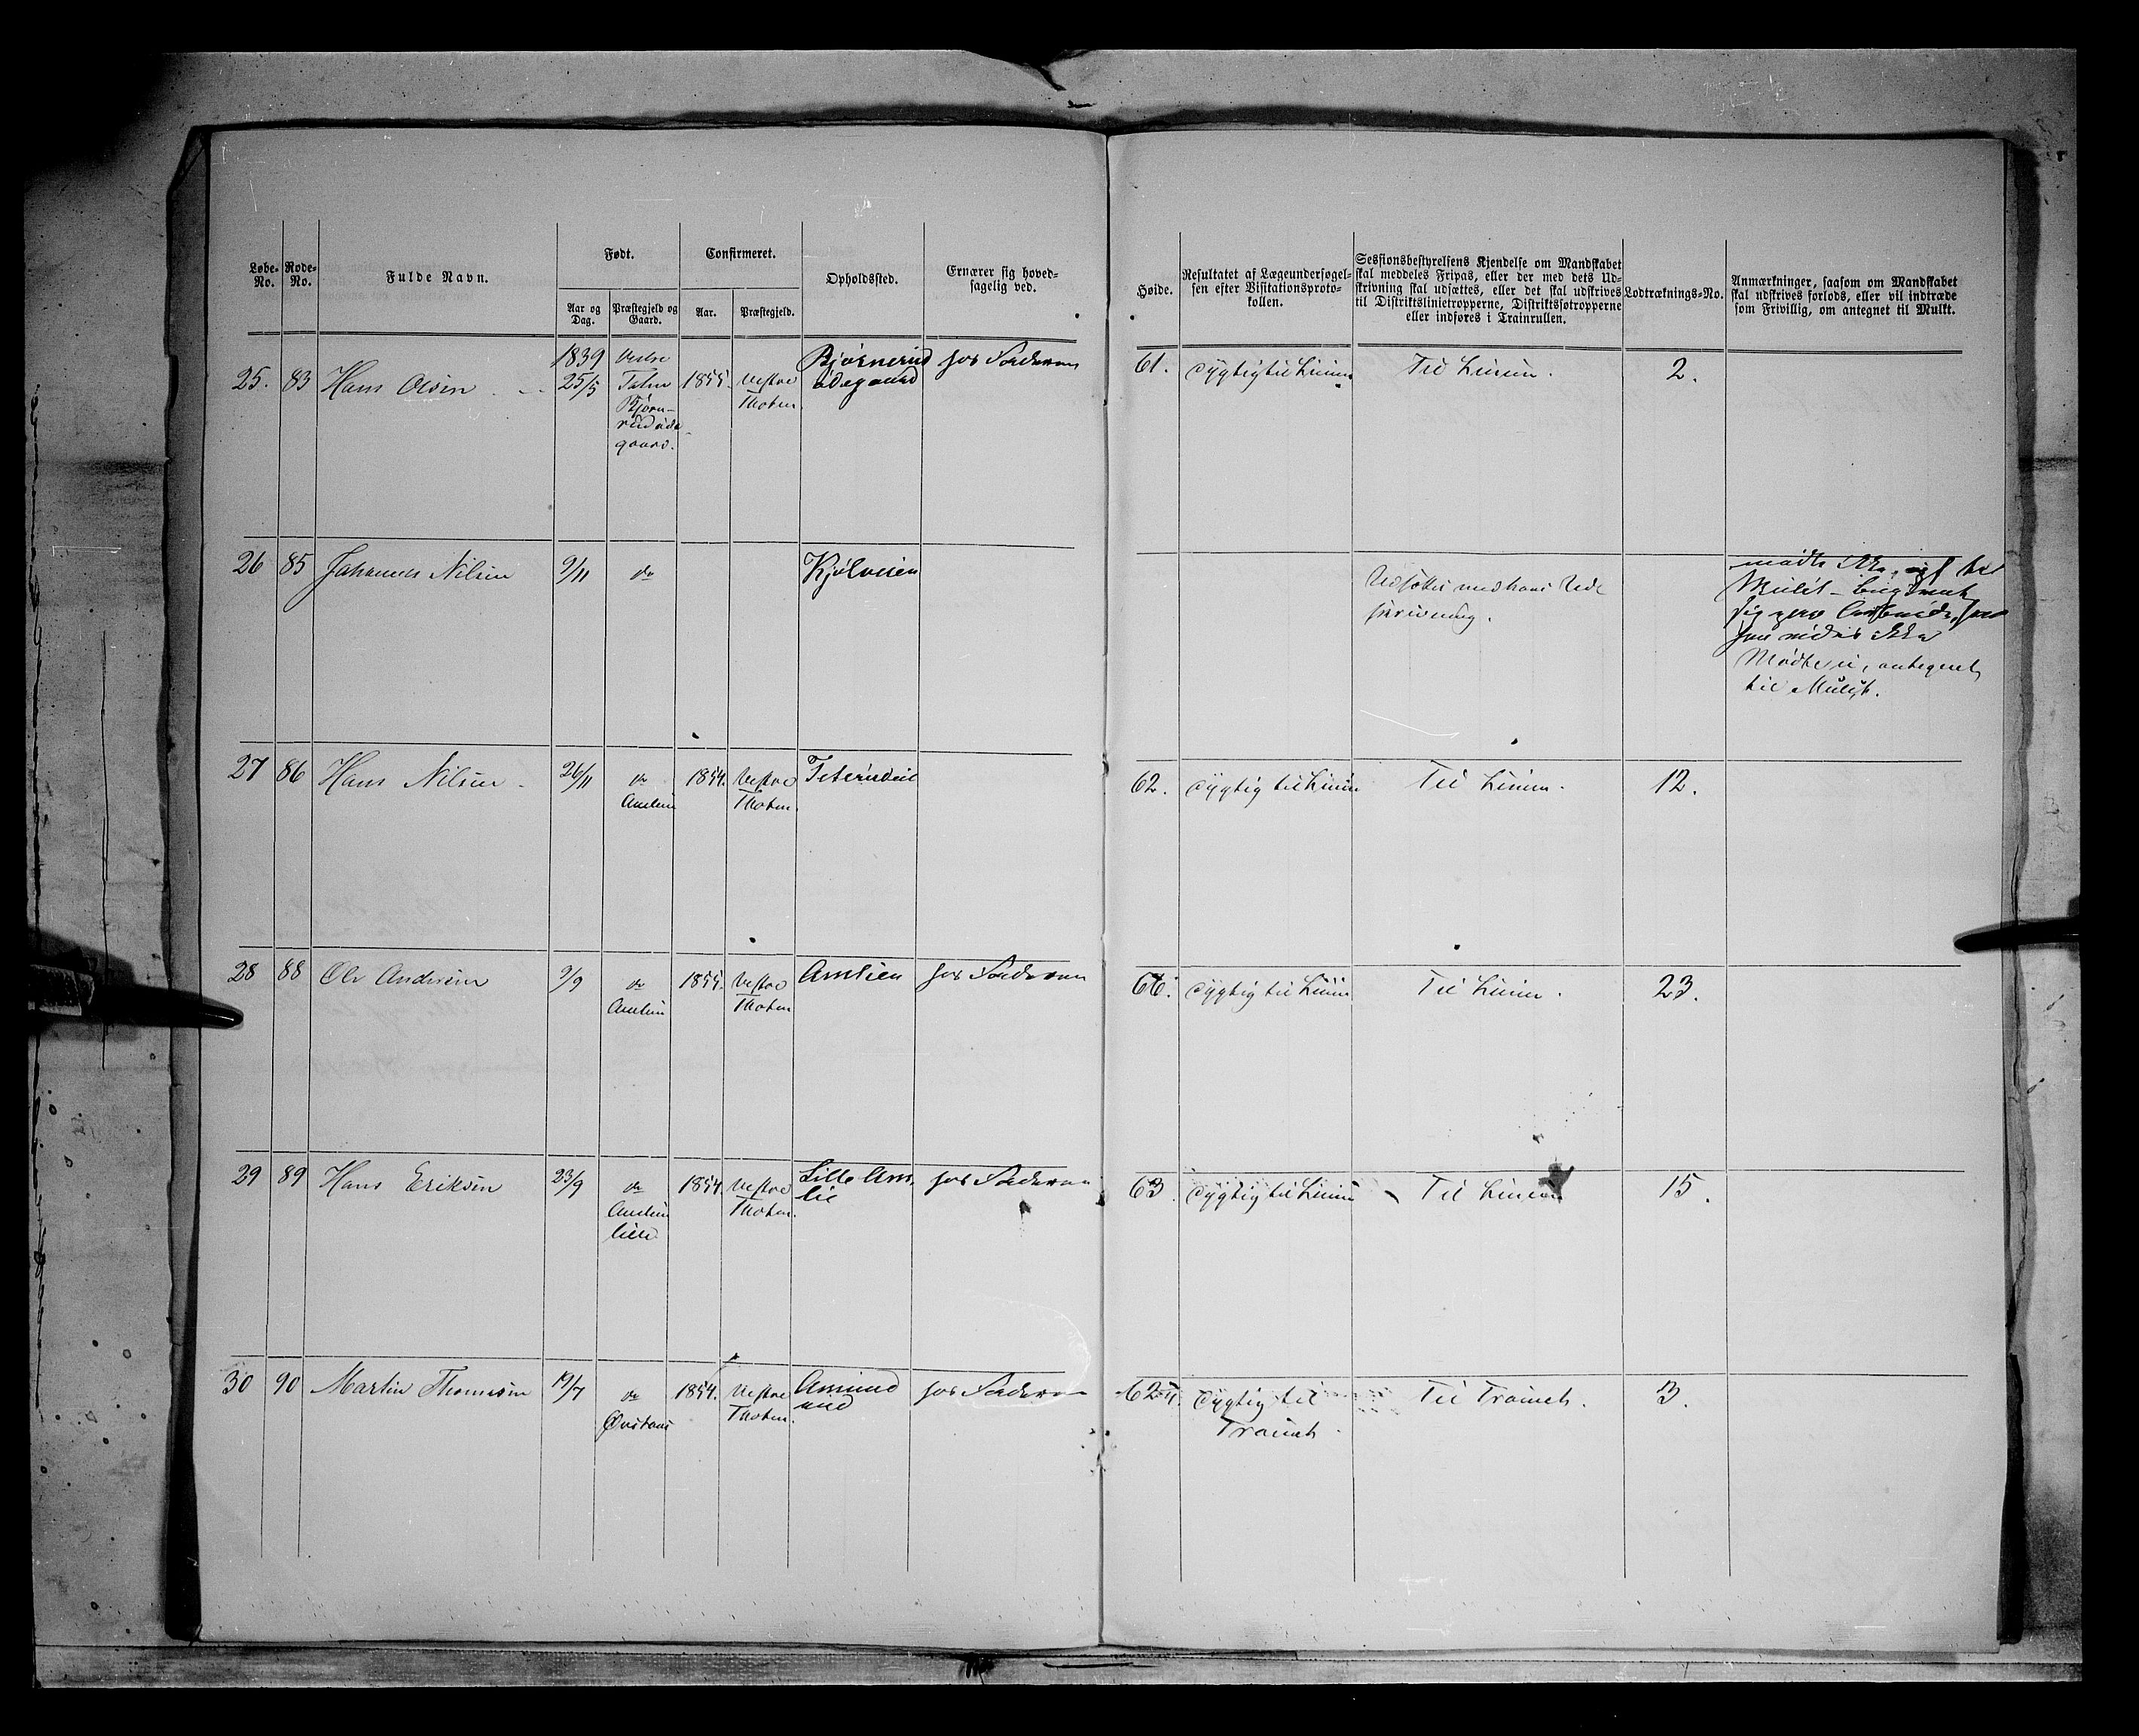 Løbe-No.
Rode-No.
Fulde Navn.
Født.
Aar og Dag.
Præstegjeld og Gaard.
Confirmeret.
Aar.
Præstegjeld.
Opholdssted.
Ernærer sig hoved-
sagelig ved.
Høide.
Resultatet af Lægeundersøgel-
sen efter Visitationsproto-
kollen.
Sessionsbestyrelsens Kjendelse om Mandskabet
skal meddeles Fripas, eller der med dets Ud-
skrivning skal udsættes, eller det skal udskrives
til Distriktslinietropperne, Distriktssøtropperne
eller indføres i Trainrullen.
Lodtræknings-No.
Anmærkninger, saasom om Mandskabet
skal udskrives forlods, eller vil indtræde
som Frivillig, om antegnet til Mulkt.
25. 83 Hans Olsen 1839 25/5 Vestre
Toten
Bjørn-
rudøde-
gaard.
1855. Vestre
Thoten
Bjørnerud
ødegaard
hos Faderen
61. dygtig til Linien Til Linien. 2.
26 85 Johannes Nilsen 9/11 do Kjølveien
Udsættes med hans Ud-
skrivning.
mødte ikke,
Mødte ei, antegnet
til Mulkt.
27 86 Hans Nilsen 26/11 do
Amlien
1854. Vestre
Thoten.
62. dygtig til Linien Til Linien. 12.
28 88 Ole Andersen 9/9 do
Amlien
1855. Vestre
Thoten
Amlien hos Faderen
66. dygtig til Linien Til Linien. 23.
29 89 Hans Eriksen 23/9 do
Amlien
lille
1854. Vestre
Thoten.
Lille Am-
lie
hos Faderen
63. dygtig til Linien Til Linien 15.
30 90 Martin Thomesen 19/7 do
1854. Vestre
Thoten.
Amund
rud
hos Faderen
62 dygtig til
Trainet.
Til Trainet. 3.